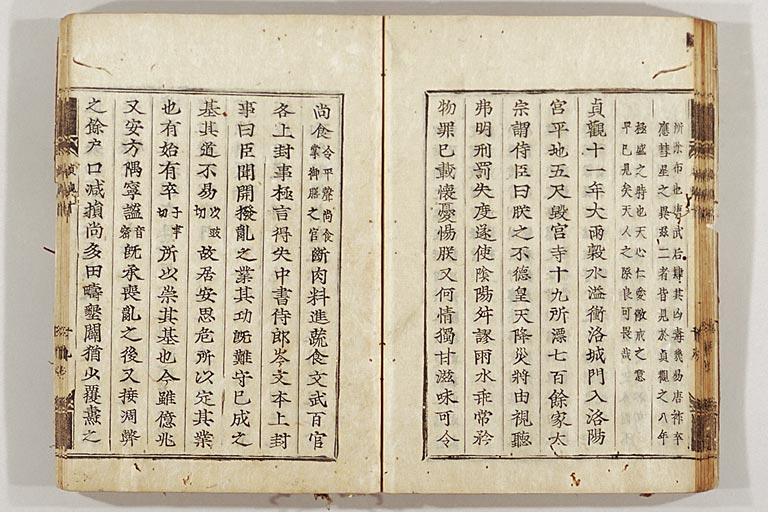 所次布也 武后肆其凶毒幾易唐祚卒
應彗星之異 二者皆見於貞觀之八年
極盛之時也天心仁愛儆戒之意
平已見矣天人之際良可畏哉
貞觀十一年大雨穀水溢衝洛城門入洛陽
宮平地五尺毀宮寺十九所漂七百餘家太
宗謂侍臣曰朕之不德皇天降災將由視聽
弗明刑罰失度遂使陰陽舛謬雨水乖常矜
物罪已載懷憂惕朕又何情獨甘滋味可令
尚食令平聲尚食掌御膳之官斷肉料進蔬食文武百官
各上封事極言得失中書侍郎岑文本上封
事曰臣聞開撥亂之業其功旣難守已成之
基其道不易以豉切故居安思危所以定其業
也有始有卒子聿切所以崇其基也今雖億兆
又安方隅寧謐音密旣承喪亂之後又接凋弊
之餘户口减損尚多田疇墾闢猶少覆燾之